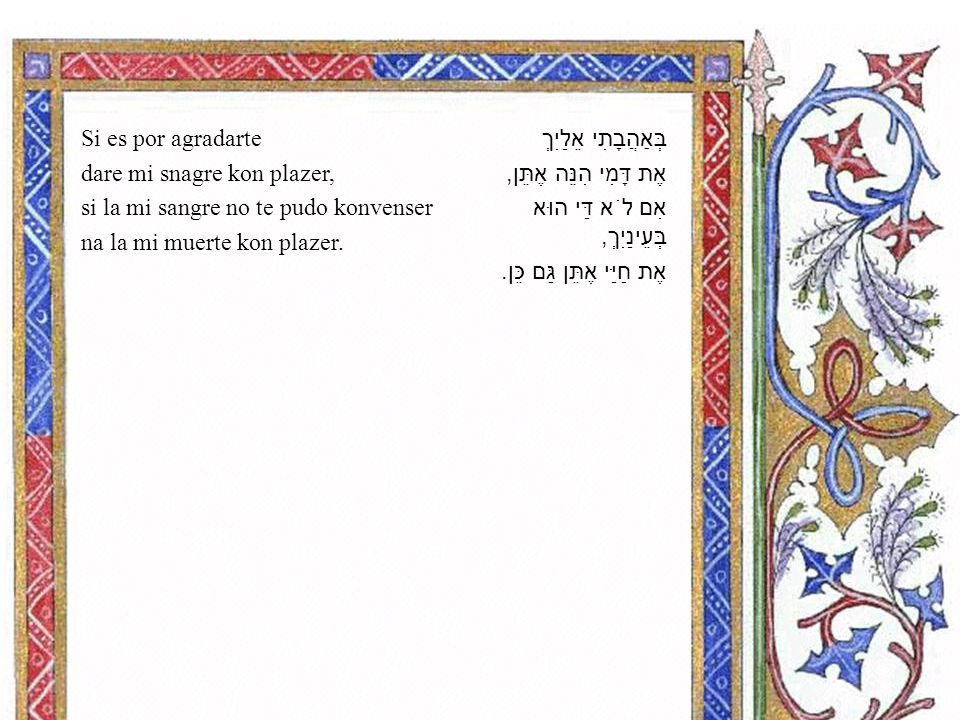 Si es por agradarte
dare mi snagre kon plazer,
si la mi sangre no te pudo konvenser
na la mi muerte kon plazer.
בְּאַהֲבָתִי אֵלַיִךְ
אֶת דָּמִי הִנֵּה אֶתֵּן,
אִם לֹא דַּי הוּא
בְּעֵינַיִךְ,
אֶת חַיַּי אֶתֵּן גַּם כֵּן.